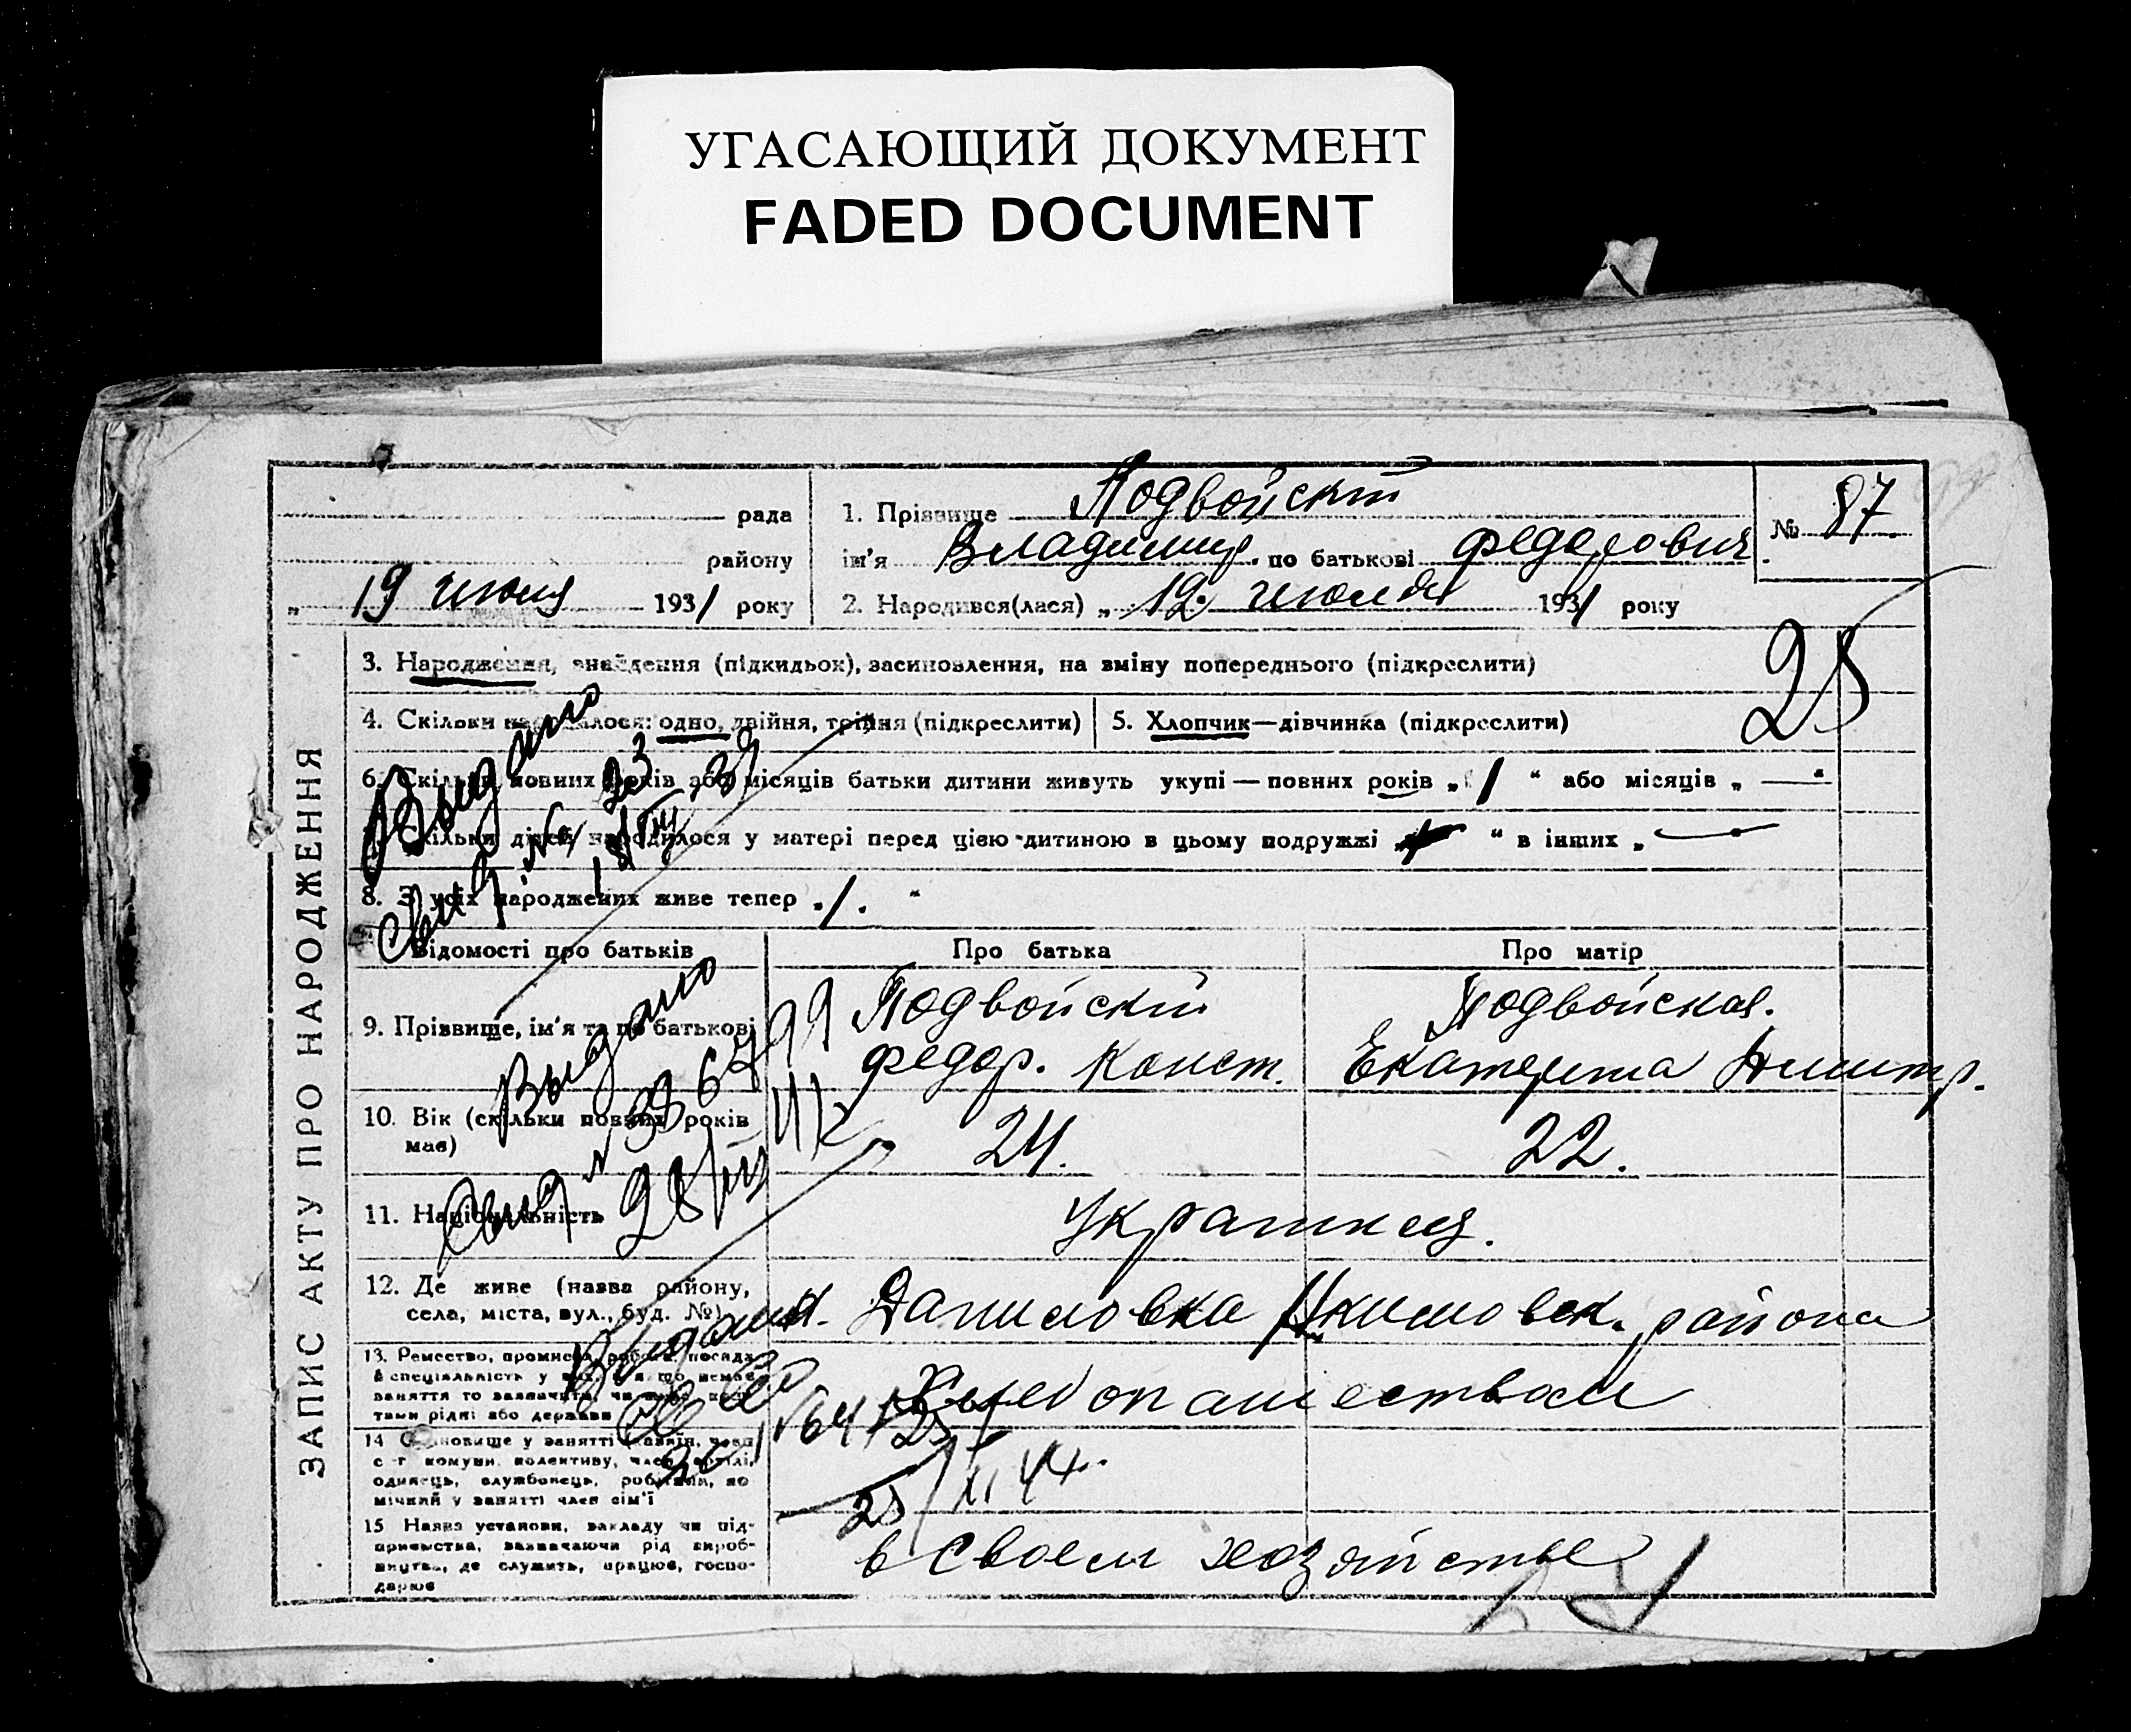 УГАСАЮЩИЙ ДОКУМЕНТ
FADED DOCUMENT
ЗАПИС АКТУ ПРО НАРОДЖЕННЯ
рада
району
„ 19 июля 1931 року
1. Прізвище Подвойский
ім'я Владимир. по батькові Федорович
№ 87
2. Народився(лася) „ 12. июля 1931 року
3. Народження, знайдення (підкидьок), засиновлення, на зміну попереднього (підкреслити)
25
4. Скільки народилося: одно, двійня, трійня (підкреслити)
5. Хлопчик—дівчинка (підкреслити)
6. Скільки повних років або місяців батьки дитини живуть укупі — повних років „ 1 “ або місяців „ — “
7. Скільки дітей народилося у матері перед цією дитиною в цьому подружжі “ в інших „ —
8. З усіх народжених живе тепер „ 1. “
Выдано
Свид. № 23
Відомості про батьків
Про батька
Про матір
9. Прізвище, ім'я та по батькові
Подвойский
Федор. Конст.
Подвойская.
Екатерина Дмитр.
Выдано
Свид
10. Вік (скільки повних років має)
24.
22.
11. Національність
Украинцы.
12. Де живе (назва району,
села, міста, вул., буд. №)
Даниловка Акимовск. района
13. Ремество, промисел, робота, посада
й спеціальність у них, а якщо немає
заняття то зазначити чи
тами рідні або держави
Хлебопашеством
14 Становище у занятті (хазяїн, член
с-г комуни, колективу, член артілі,
одинець, службовець, робітник, по
мічний у занятті член сім'ї
25/XI 44.
15 Назва установи, закладу чи під-
приємства, зазначаючи рід вироб-
ництва, де служить, працює, госпо-
дарює
в своем хозяйстве